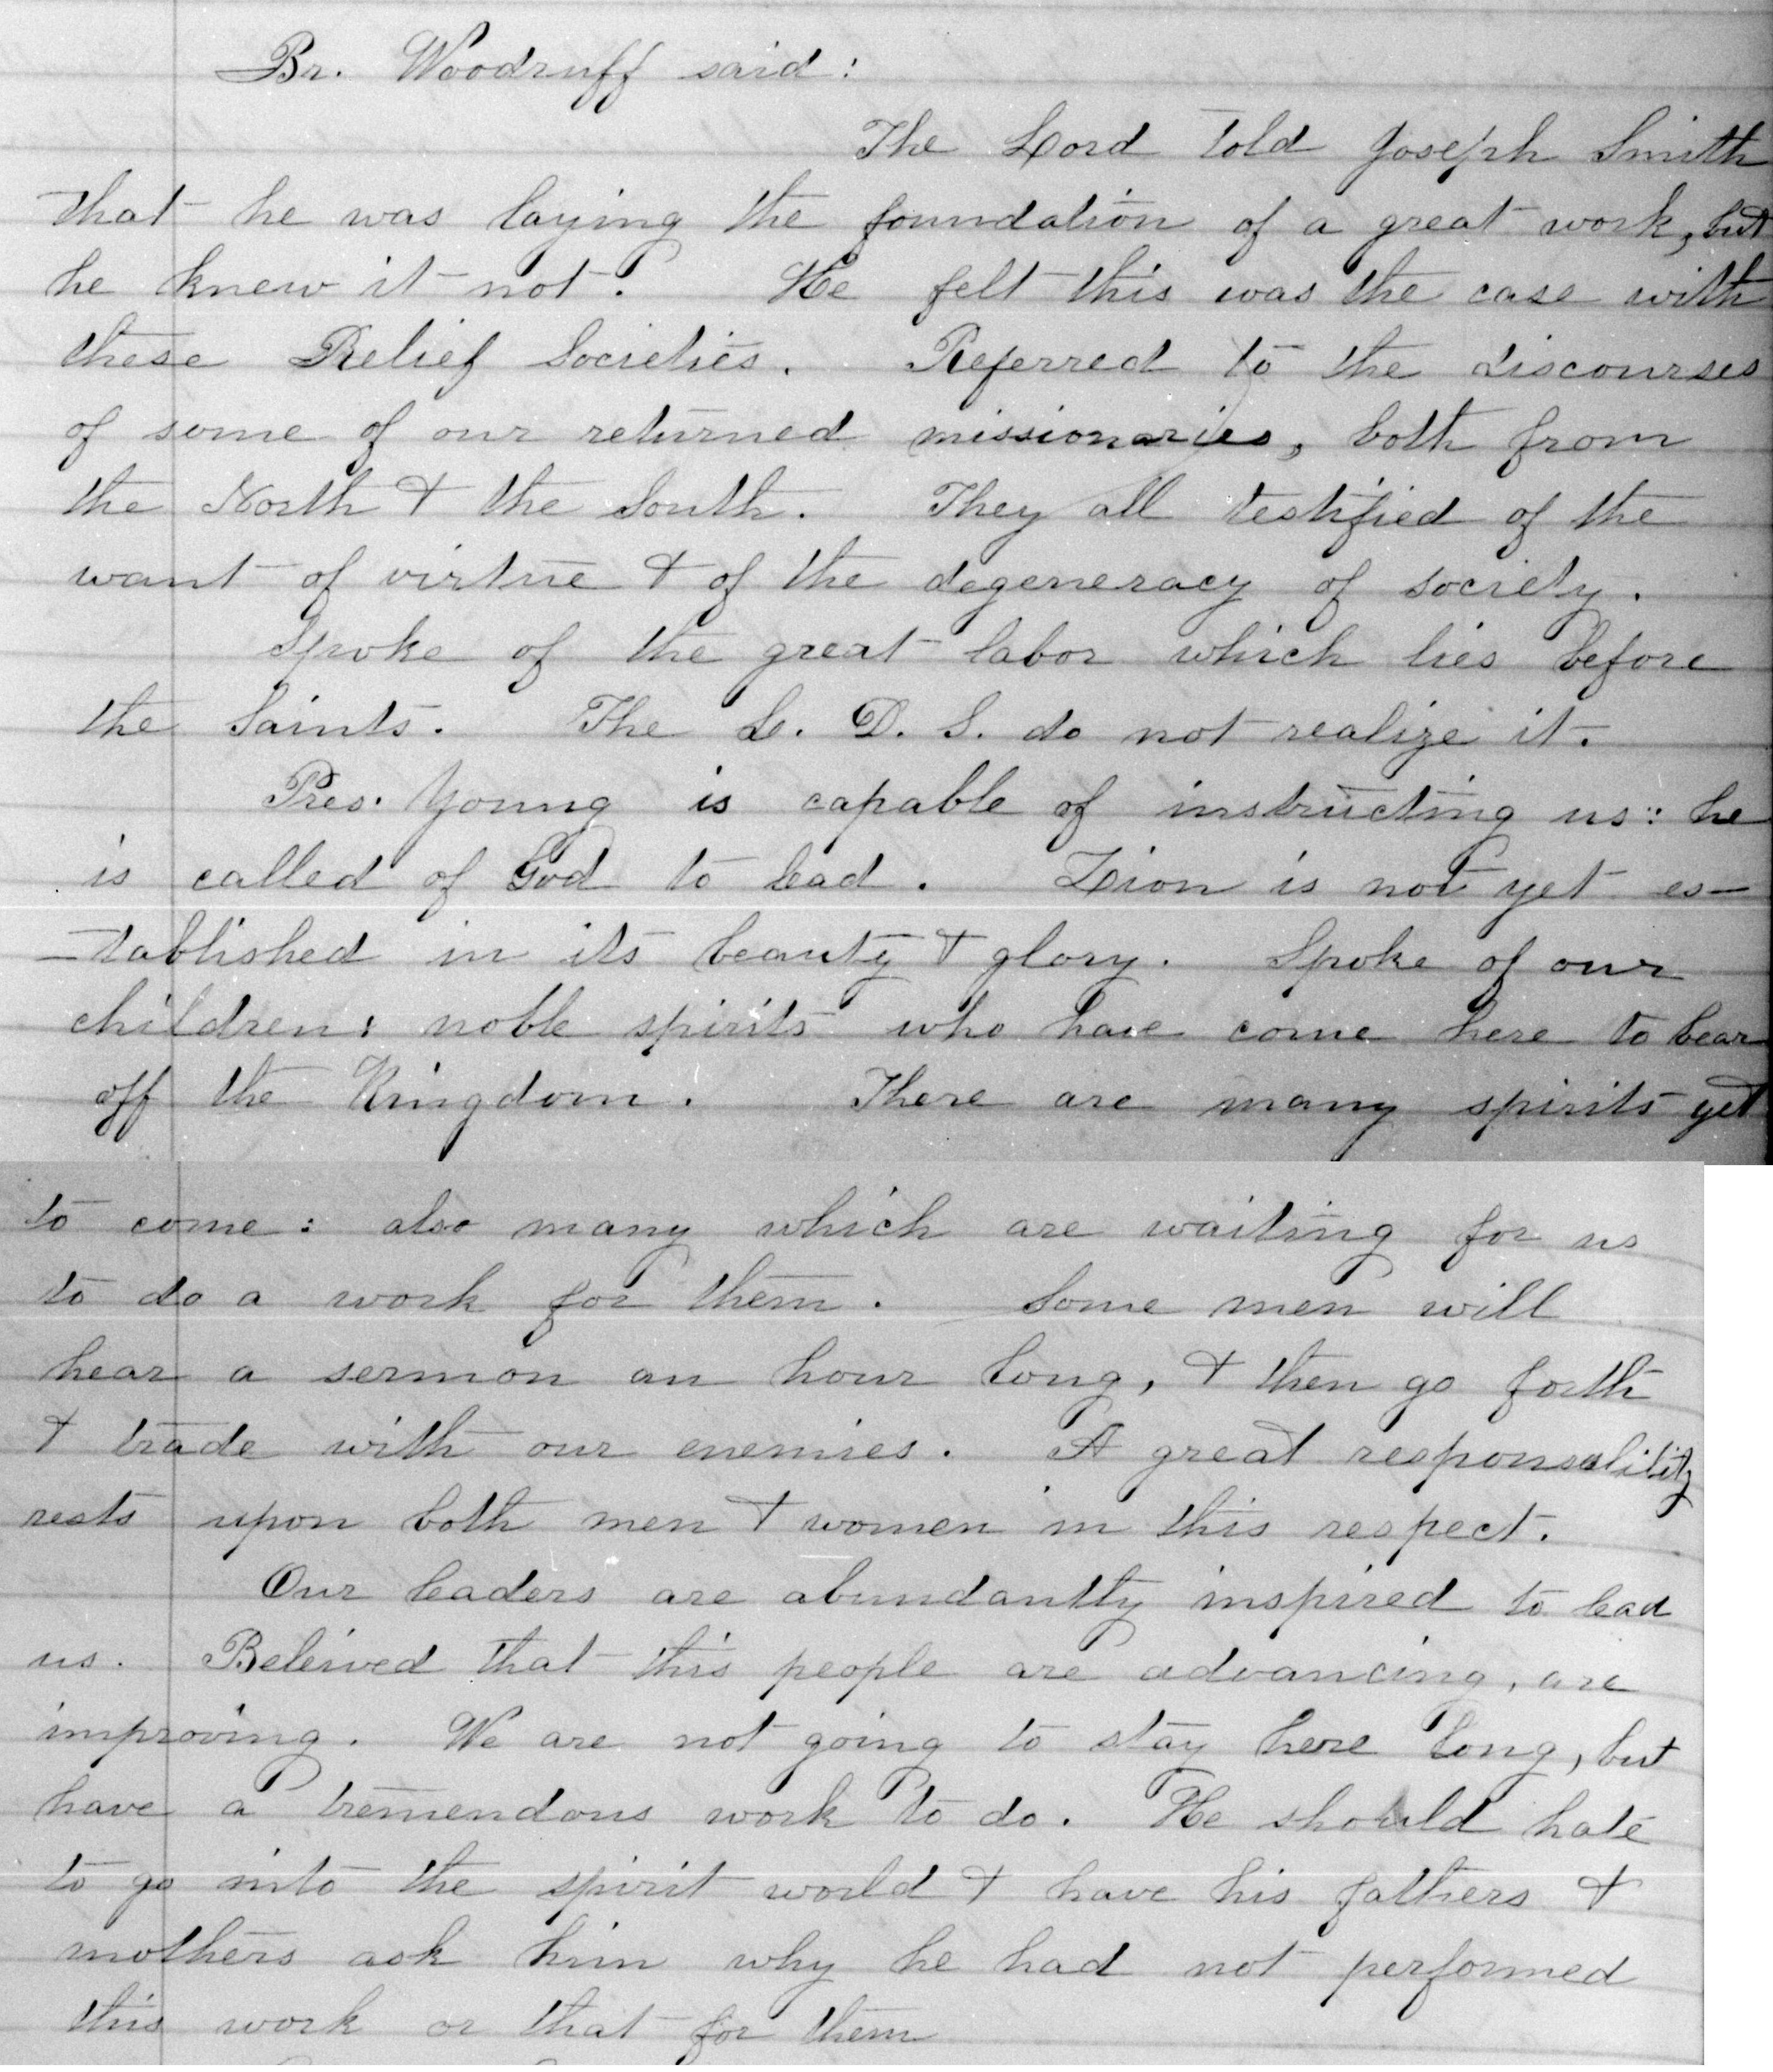 Br. Woodruff said:
The Lord told Joseph Smith
that he was laying the foundation of a great work, but
he knew it not! He felt this was the case with
these Relief Societies. Referred to the discourses
of some of our returned missionaries, both from
the North & the South. They all testified of the
want of virtue & of the degeneracy of society.
Spoke of the great labor which lies before
the Saints. The L. D. S. do not realize it.
Pres. Young is capable of instructing us: he
is called of God to lead. Zion is not yet es-
-tablished in its beauty & glory. Spoke of our
children: noble spirits who have come here to bear
off the Kingdom. There are many spirits yet
to come: also many which are waiting for us
to do a work for them. Some men will
hear a sermon an hour long, & then go forth
& trade with our enemies. A great responsability
rests upon both men & women in this respect.
Our leaders are abundantly inspired to lead
us. Beleived that this people are advancing, are
improving. We are not going to stay here long, but
have a tremendous work to do. He should hate
to go into the spirit world & have his fathers &
mothers ask him why he had not performed
this work or that for them